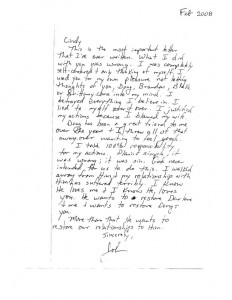 Feb 2008
Cindy
This is the most important letter
that I've ever written. What I did
with you was wrong. I was completely
self-centered only thinking of myself. I
used you for my own pleasure not letting
thoughts of you, Doug, Brandon,
or Brittany come into my mind. I
betrayed everything I believe in. I
lied to myself over & over. I justified
my actions because I blamed my wife.
Doug has been a great friend to me
over the years & I threw all of that
away
I take 100% responsibility
for my actions. Plain & simple, it
was wrong; it was sin. God never
intended for us to do this. I walked
away from Him & my relationship with
Him has suffered terribly. I know
He loves me & I know He loves
you. He wants to restore Darlene
& me & wants to restore Doug
you.
More than that He wants to
restore our relationships to Him.
Sincerely,
John